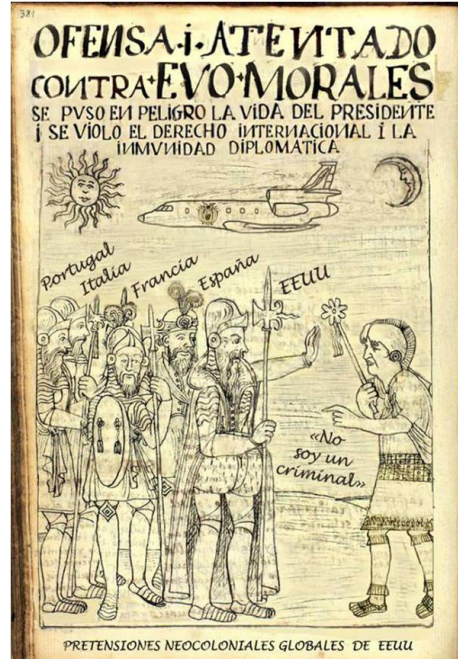 381
OFENSA·i·ATENTADO
CONTRA+EVO+MORALES
SE PVSO EN PELIGRO LA VIDA DEL PRESIDENTE
i SE VIOLO EL DERECHO INTERNACIONAL i LA
INMVNIDAD DIPLOMATICA
Portugal
Italia
Francia
España
EEUU
«No
soy un
criminal»
PRETENSIONES NEOCOLONIALES GLOBALES DE EEUU